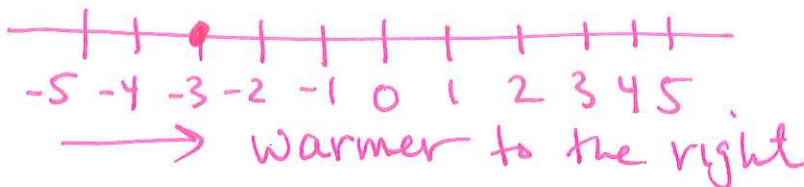 -5 -4 -3 -2 -1 0 1 2 3 4 5
warmer to the right